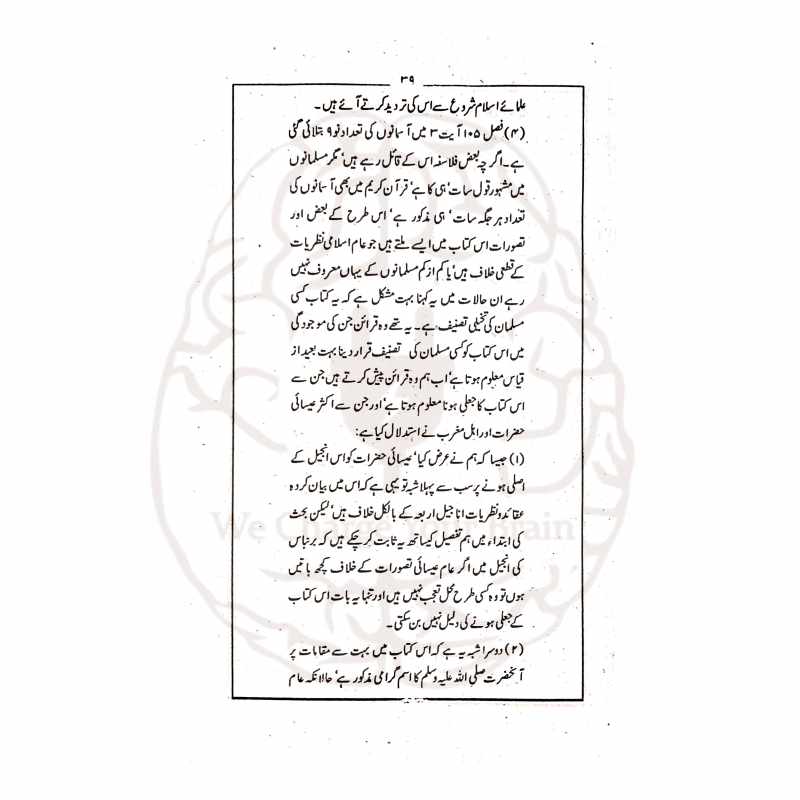 ۳۹
علمائے اسلام شروع سے اس کی تردید کرتے آئے ہیں۔
(۴) فصل ۱۰۵ آیت ۳ میں آسمانوں کی تعداد نو ۹ بتلائی گئی
ہے۔ اگرچہ بعض فلاسفہ اس کے قائل رہے ہیں‘ مگر مسلمانوں
میں مشہور قول سات‘ ہی کا ہے‘ قرآن کریم میں بھی آسمانوں کی
تعداد ہر جگہ سات‘ ہی مذکور ہے‘ اس طرح کے بعض اور
تصورات اس کتاب میں ایسے ملتے ہیں جو عام اسلامی نظریات
کے قطعی خلاف ہیں‘ یا کم از کم مسلمانوں کے یہاں معروف نہیں
رہے ان حالات میں یہ کہنا بہت مشکل ہے کہ یہ کتاب کسی
مسلمان کی تخیلی تصنیف ہے۔ یہ تھے وہ قرائن جن کی موجودگی
میں اس کتاب کو کسی مسلمان کی تصنیف قرار دینا بہت بعید از
قیاس معلوم ہوتا ہے‘ اب ہم وہ قرائن پیش کرتے ہیں جن سے
اس کتاب کا جعلی ہونا معلوم ہوتا ہے‘ اور جن سے اکثر عیسائی
حضرات اور اہل مغرب نے استدلال کیا ہے:
(۱) جیسا کہ ہم نے عرض کیا‘ عیسائی حضرات کو اس انجیل کے
اصلی ہونے پر سب سے پہلا شبہ تو یہی ہے کہ اس میں بیان کردہ
عقائد و نظریات اناجیل اربعہ کے بالکل خلاف ہیں‘ لیکن بحث
کی ابتداء میں ہم تفصیل کیساتھ یہ ثابت کر چکے ہیں کہ برنباس
کی انجیل میں اگر عام عیسائی تصورات کے خلاف کچھ باتیں
ہوں تو وہ کسی طرح محل تعجب نہیں ہیں اور تنہا یہ بات اس کتاب
کے جعلی ہونے کی دلیل نہیں بن سکتی۔
(۲) دوسرا شبہ یہ ہے کہ اس کتاب میں بہت سے مقامات پر
آنحضرت صلی اللہ علیہ وسلم کا اسم گرامی مذکور ہے‘ حالانکہ عام
We Charge Your Brain